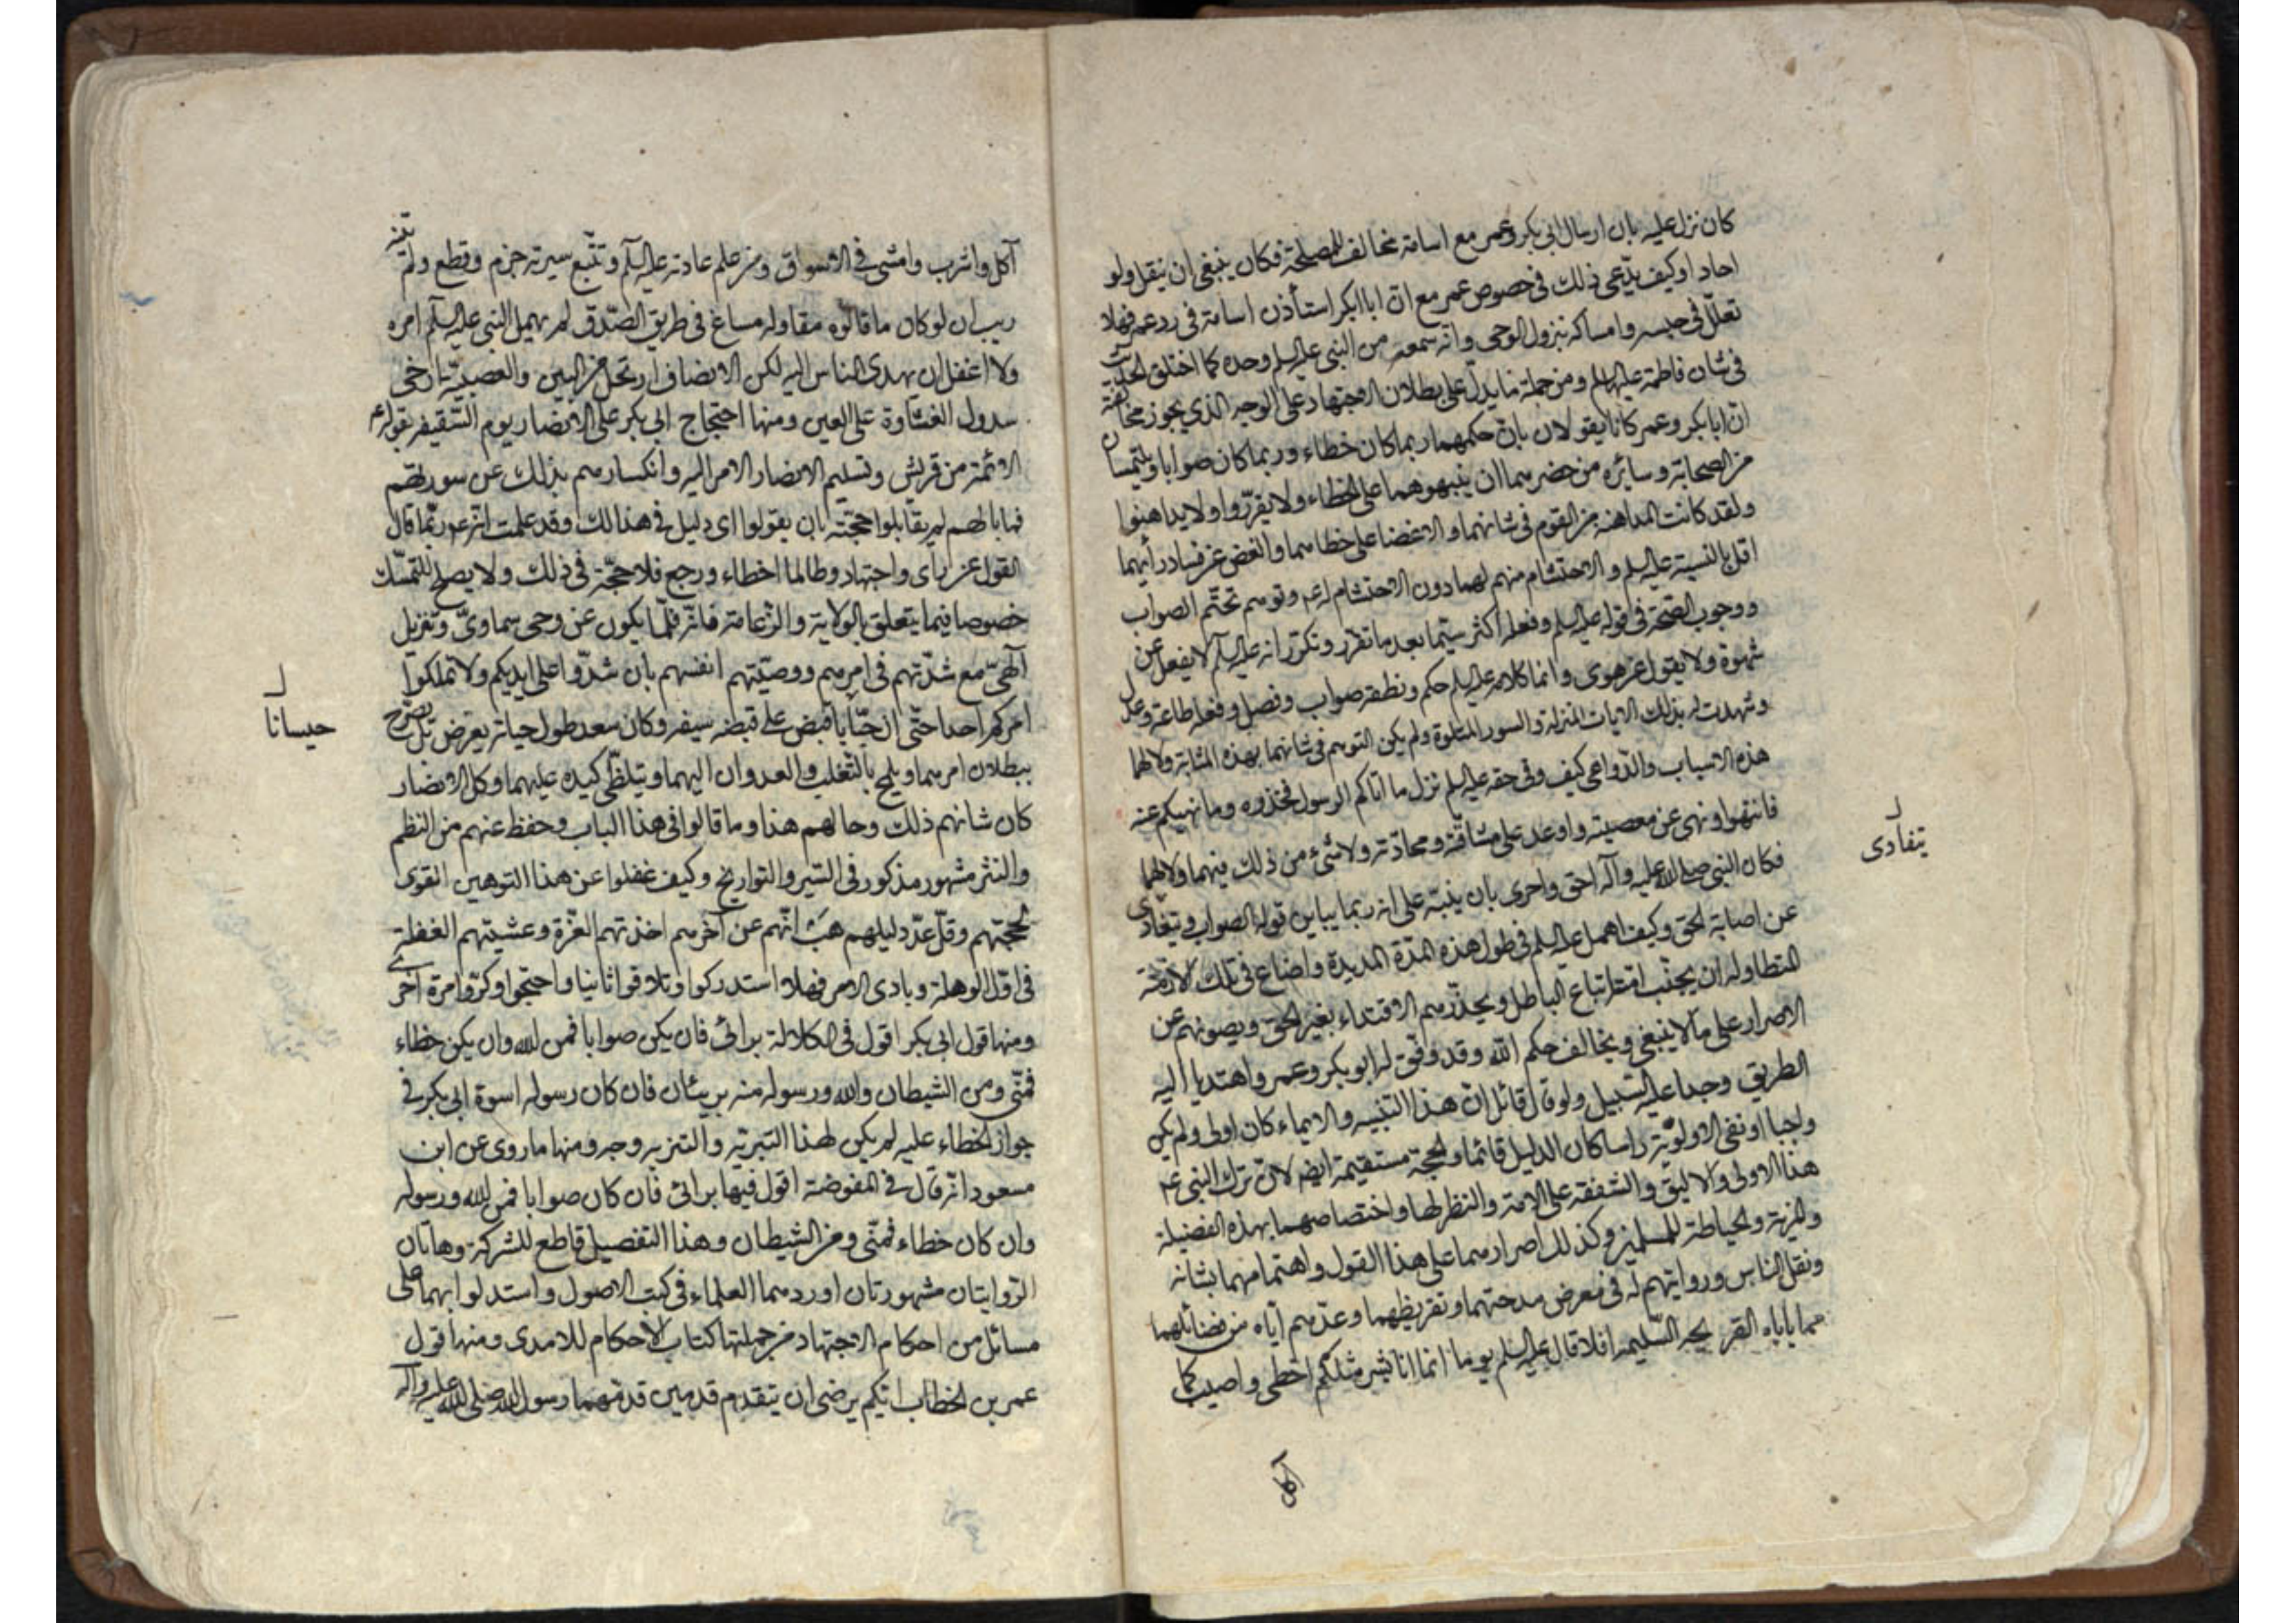 كان نزل عليه بان ارسال ابي بكر وعمر مع اسامة مخالف للمصلحة فكان ينبغي ان ينقل ولو
احاد او كيف يدّعى ذلك في خصوص عمر مع انّ ابا بكر استأذن اسامة في رد عمر فهلا
تعلّل في حبسه وامساكه بنزول الوحي وانّه سمعه من النبي عليه السلم وحده كما اختلق الحديث
في شان فاطمة عليها السلم ومن جملة ما يدلّ على بطلان الاجتهاد على الوجه الذي يجوز مخالفته
انّ ابا بكر وعمر كانا يقولان بانّ حكمهما ربما كان خطاء وربما كان صوابا ويلتمسان
من الصحابة وسائر من حضرهما ان ينبهوهما على الخطاء ولا يقرّوا ولا يداهنوا
ولقد كانت المداهنة من القوم في شانهما والاغضا على خطاهما والغض عن فساد رأيهما
اقل بالنسبة عليه السلم والاحتشام منهم لهما دون الاحتشام له ع وتوهم تحتّم الصواب
ووجوب الصّحة في قوله عليه السلم وفعله اكثر سيّما بعد ما تقرر وتكرّر انه عليه السلم لا يفعل عن
شهوة ولا يقول عن هوى وانما كلامه عليه السلم حكم ونطقه صواب وفصل وفعله طاعة وعدل
وشهدت له بذلك الايات المنزلة والسور المتلوة ولم يكن التوهم في شانهما بهذه المثابة ولا لهما
هذه الاسباب والدّواعي كيف وفي حقه عليه السلم نزل ما اتاكم الرسول فخذوه وما نهيكم عنه
فانتهوا ونهى عن معصيته واوعد على مشاقّته ومحادّته ولا شيء من ذلك فيهما ولا لهما
فكان النبي صلى الله عليه وآله احق واحرى بان ينبّه على انه ربما يباين قوله الصواب ويتفادى
عن اصابة الحق وكيف اهمل عليه السلم في طول هذه المدّة المديدة واضاع في تلك الازمنة
المتطاولة ان يجنّب امته اتباع الباطل ويحذّرهم الاقتداء بغير الحق ويصونهم عن
الاصرار على ما لا ينبغي ويخالف حكم الله وقد وفّق له ابو بكر وعمر واهتديا اليه
الطريق وجدا عليه السّبيل ولو قال قائل انّ هذا التنبيه والايماء كان اولى ولم يكن
واجبا او نفى الاولويّة راسا كان الدليل قائما والحجة مستقيمة ايضا لانّ ترك النبي ع
هذا الاولى والاليق والشفقة على الامة والنظر لها واختصاصهما بهذه الفضيلة
والمزية والحياطة للمسلمين وكذلك اصرارهما على هذا القول واهتمامهما بشانه
ونقل الناس وروايتهم له في معرض مدحتهما وتقريظهما وعدّهم ايّاه من فضائلهما
مما ياباه القريحة السّليمة افلا قال عليه السلم يوما انما انا بشر مثلكم اخطى واصيب كما
آكل
يتفادى
آكل واشرب وامشى في الاسواق ومن علم عادته عليه السلم وتتبّع سيرته جزم وقطع ولم تبنه
ريب ان لو كان ما قالوه مقاوله مساغ في طريق الصّدق لم يهمل النبي عليه السلم امره
ولا اغفل ان يهدى الناس اليه لكن الانصاف ارتحل من البين والعصبيّة ارخى
سدول الغشاوة على العين ومنها احتجاج ابي بكر على الانصار يوم السّقيفة بقوله ع
الائمة من قريش وتسليم الانصار الامر اليه وانكسارهم بذلك عن سورتهم
فما بالهم لم يقابلوا حجّته بان يقولوا اى دليل في هذا لك وقد علمت انّه ع ربّما قال
القول عن راى واجتهاد وطالما اخطاء ورجع فلا حجّة في ذلك ولا يصلح للتمسّك
خصوصا فيما يتعلق بالولاية والزّعامة فانّه قلّما يكون عن وحي سماويّ وتنزيل
آلهيّ مع شدّتهم في امرهم ووصيّتهم انفسهم بان شدّوا على ايديكم ولا تملكوا
امركم احدا حتّى انّ حبّابا قبض على قبضه سيفه وكان سعد طول حياته يعرض بل يصرّح
ببطلان امرهما ويلمح بالتّغلب والعدوان اليهما ويتلظّى كبده عليهما وكل الانصار
كان شانهم ذلك وحالهم هذا وما قالوا في هذا الباب وحفظ عنهم من النظم
والنثر مشهور مذكور في السّير والتواريخ وكيف غفلوا عن هذا التوهين القوى
لحجّتهم وقلّ عدّ دليلهم هب انّهم عن آخرهم اخذتهم الغرّة وعشيتهم الغفلة
في اوّل الوهلة وبادى الامر فهلا استدركوا وتلاقوا ثانيا واحتجوا وكرّوا مرة اخرى
ومنها قول ابي بكر اقول في الكلالة برائى فان يكن صوابا فمن الله وان يكن خطاء
فمنّي ومن الشيطان والله ورسوله منه بريئان فان كان رسوله اسوة ابي بكر في
جواز الخطاء عليه لم يكن لهذا التبرية والتنزيه وجه ومنها ما روى عن ابن
مسعود انّه قال في المفوضة اقول فيها برائى فان كان صوابا فمن الله ورسوله
وان كان خطاء فمنّي ومن الشيطان وهذا التفصيل قاطع للشركة وهاتان
الرّوايتان مشهورتان اوردهما العلماء في كتب الاصول واستدلوا بهما على
مسائل من احكام الاجتهاد من جملتها كتاب الاحكام للامدى ومنها قول
عمر بن الخطاب ايّكم يرضى ان يتقدم قدمين قدمهما رسول الله صلى الله عليه وآله
حيسانا